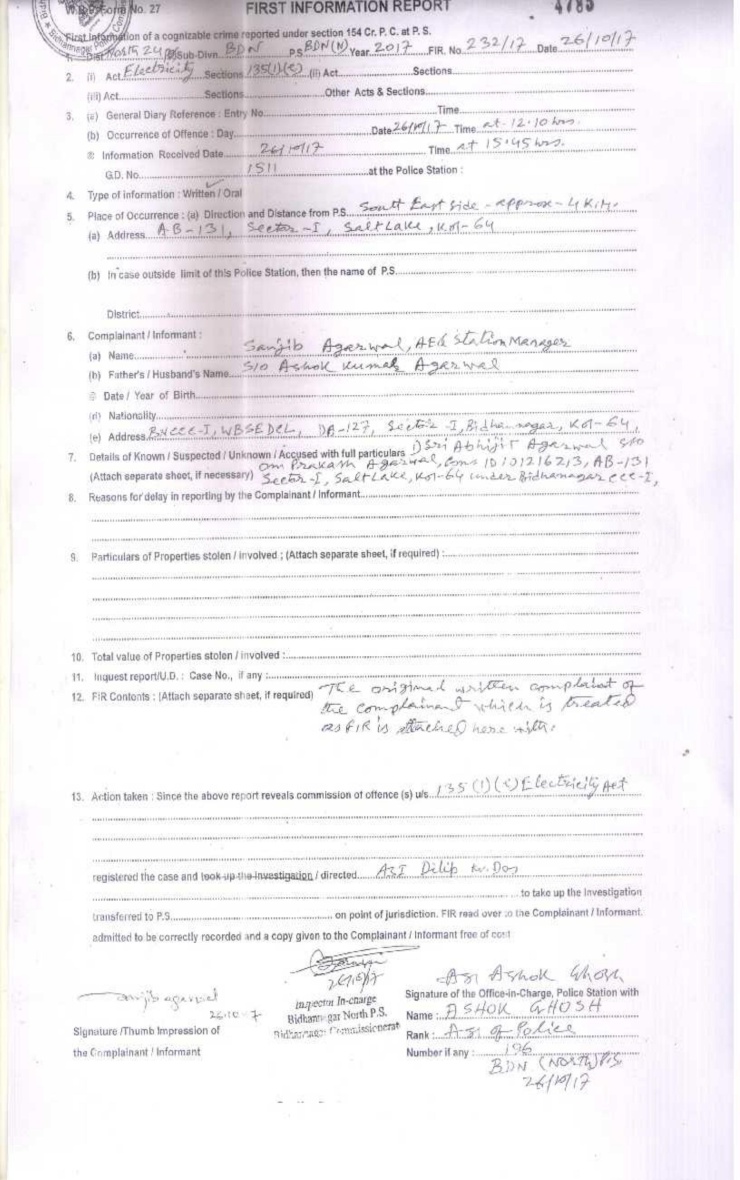 W.B.P. Form No. 27 FIRST INFORMATION REPORT 4785
First Information of a cognizable crime reported under section 154 Cr. P. C. at P. S.
1. Dist North 24 Pgs Sub-Divn. BDN P.S BDN(N) Year 2017 FIR. No 232/17 Date 26/10/17
2. (i) Act Electricity Sections 135(1)(c) (ii) Act Sections
(iii) Act Sections Other Acts & Sections
3. (a) General Diary Reference : Entry No. Time
(b) Occurrence of Offence : Day Date 26/10/17 Time at 12.10 hrs.
© Information Received Date 26/10/17 Time at 15.45 hrs.
G.D. No. 1511 at the Police Station :
4. Type of information : Written / Oral
5. Place of Occurrence : (a) Direction and Distance from P.S. South East side - approx - 4 K.M.
(a) Address AB-131, Sector-I, Saltlake, Kol-64
(b) In case outside limit of this Police Station, then the name of P.S.
District
6. Complainant / Informant :
(a) Name Sanjib Agarwal, AE & Station Manager
(b) Father's / Husband's Name S/O Ashok Kumar Agarwal
© Date / Year of Birth
(d) Nationality
(e) Address BNCCC-I, WBSEDCL, DA-127, Sector-I, Bidhannagar, Kol-64,
7. Details of Known / Suspected / Unknown / Accused with full particulars 1) Sri Abhijit Agarwal S/O
Om Prakash Agarwal, Cons ID 101216213, AB-131
(Attach separate sheet, if necessary) Sector-I, Saltlake, Kol-64 under Bidhannagar CCC-I,
8. Reasons for delay in reporting by the Complainant / Informant
9. Particulars of Properties stolen / involved ; (Attach separate sheet, if required) :
10. Total value of Properties stolen / involved :
11. Inquest report/U.D. : Case No., if any :
12. FIR Contents : (Attach separate sheet, if required) The original written complaint of
the complainant which is treated
as FIR is attached here with.
13. Action taken : Since the above report reveals commission of offence (s) u/s 135(1)(c) Electricity Act
registered the case and took up the investigation / directed ASI Dilip Kr. Das
to take up the Investigation
transferred to P.S. on point of jurisdiction. FIR read over to the Complainant / Informant.
admitted to be correctly recorded and a copy given to the Complainant / Informant free of cost
26/10/17
sanjib agarwal
26.10.17
Inspector In-charge
Bidhannagar North P.S.
Bidhannagar Commissionerate
Signature /Thumb Impression of
the Complainant / Informant
ASI Ashok Ghosh
Signature of the Office-in-Charge, Police Station with
Name : ASHOK GHOSH
Rank : ASI of Police
Number if any : 196
BDN (NORTH) P.S.
26/10/17